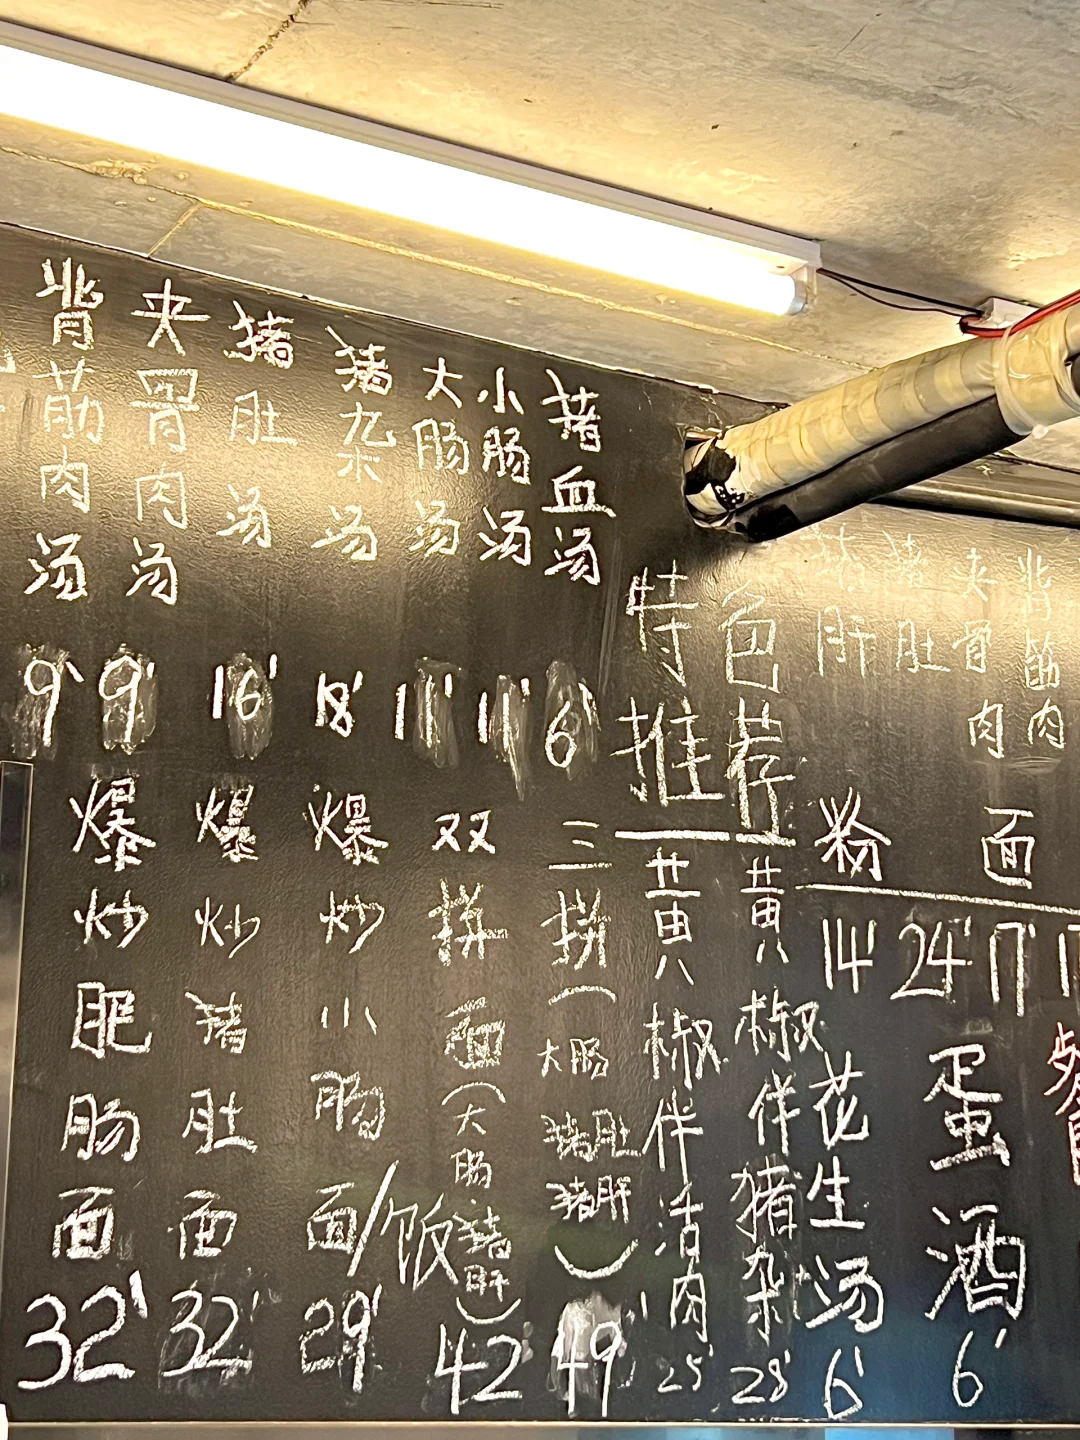 背筋肉汤 9'
夹骨肉汤 9'
猪肚汤 16'
猪杂汤 18'
大肠汤 11'
小肠汤 11'
猪血汤 6'
爆炒肥肠面 32'
爆炒猪肚面 32'
爆炒小肠面/饭 29'
双拼面(大肠·猪肝) 42
三拼(大肠 猪肚 猪肝) 49'
特色
推荐
黄八椒伴活肉 25'
黄八椒伴猪杂 28'
猪肝
猪肚
夹骨肉
背筋肉
粉 面
14' 24' 17'
花生汤 6'
蛋酒 6'